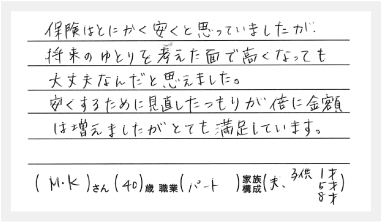 保険はとにかく安くと思っていましたが、
将来のゆとりを考えた面で高くなっても
大丈夫なんだと思えました。
安くするために見直したつもりが倍に金額
は増えましたがとても満足しています。
(M・K)さん(40)歳 職業(パート)家族構成(夫、子供 1才 5才 8才)